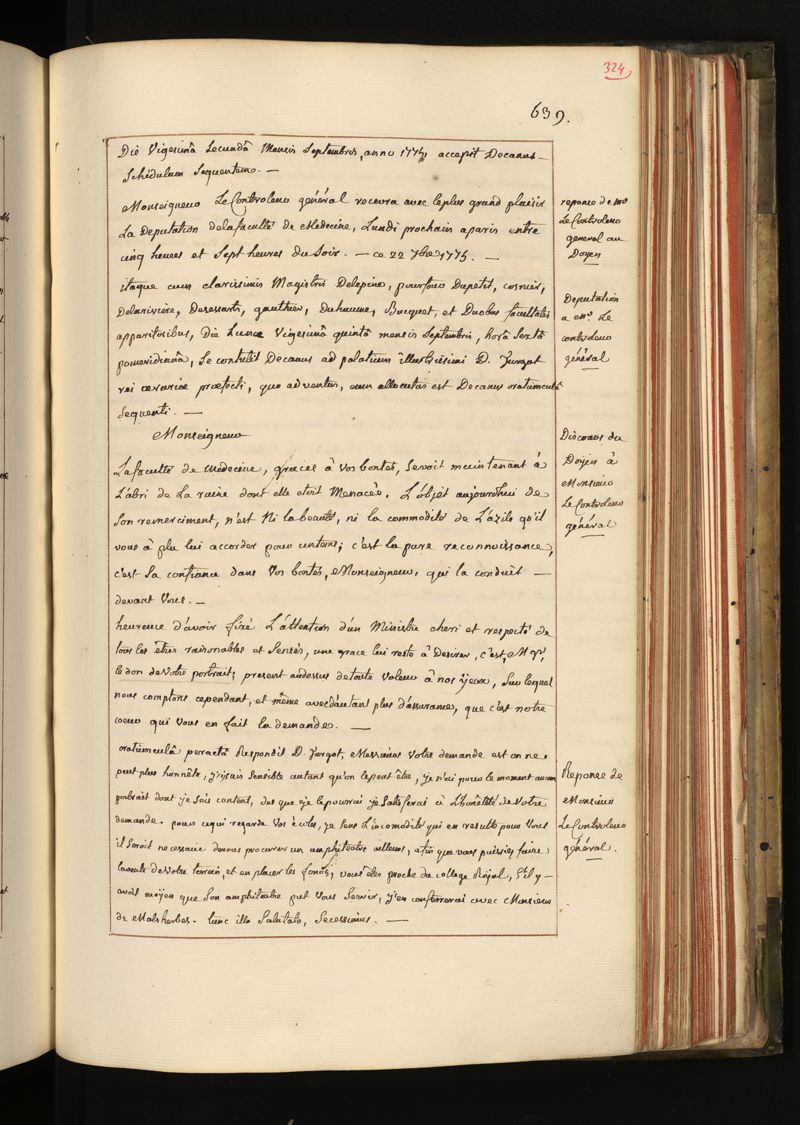 324
639.
Die Vigesimâ Secundâ Mensis Septembris, anno 1775, accepit Decanus
Schedulam Sequentem. —
Monseigneur Le Controleur général recevra avec le plus grand plaisir
La Deputation de la faculté de Medecine, Lundi prochain a paris entre
cinq heures et Sept heures du Soir. — ce 22 7bre 1775. —
reponse de Mr
Le Controleur
general au
Doyen
itaque cum clarissimis Magistris Delepine, pourfour Dupetit, cosnier,
Delarivière, Desessarts, gauthier, Duhaume, Bucquet, et Duobus facultatis
apparitoribus, Die Lunae Vigesimâ quintâ mensis Septembris, horâ Sextâ
pomeridianâ, Se contulit Decanus ad palatium illustrissimi D. Turgot
rei aerariae praefecti, quo adventus, eum allocutus est Decanus oratiunculâ
Sequenti. —
Deputation
a Mr. Le
controleur
général
Monseigneur
La faculté de Médecine, graces à Vos bontés, Seroit maintenant à
L'abri de La ruine dont elle etoit Menacée. L'objet aujourd'hui de
Son remerciment, n'est Ni la beauté, ni la commodité de L'azile qu'il
vous à plu lui accorder pour un tems; c'est la pure reconnoissance,
c'est Sa confiance dans Vos bontés, Monseigneur, qui la conduit —
devant Vous. —
Discours du
Doyen à
Monsieur
Le Controleur
général
heureuse d'avoir fixé L'attention d'un Ministre cheri et respecté de
tous les êtres raisonables et Sensés, une grace lui reste à Desirer, c'est, Mgr,
le don de Votre portrait; present audessus de toute Valeur à nos yeux, Sur lequel
nous comptons cependant, et même avec d'autant plus d'assurance, que c'est notre
coeur qui Vous en fait la demande. —
oratiunculâ peractâ Respondit D. Turgot, Messieurs Votre demande est on ne
peut plus honnête, j'y suis Sensible autant qu'on le peut être, je n'ai pour le moment aucun
portrait dont je Sois content, des que je le pourrai je Satisferai à L'honêteté de Votre
demande. pour ce qui regarde Vos écoles, je Sens L'incomodité qui en resulte pour Vous
il Seroit necessaire de vous procurer un amphiteatre ailleurs, afin que vous puissiez faire
la vente de Votre terrein, et en placer les fonds, vous êtes proche du college Royal, S'il y —
avoit moyen que Son amphiteatre put Vous Servir, j'en confererai avec Monsieur
de Malsherbes. tunc illo Salutato, Secessimus. —
Reponse de
Monsieur
Le Controleur
général.